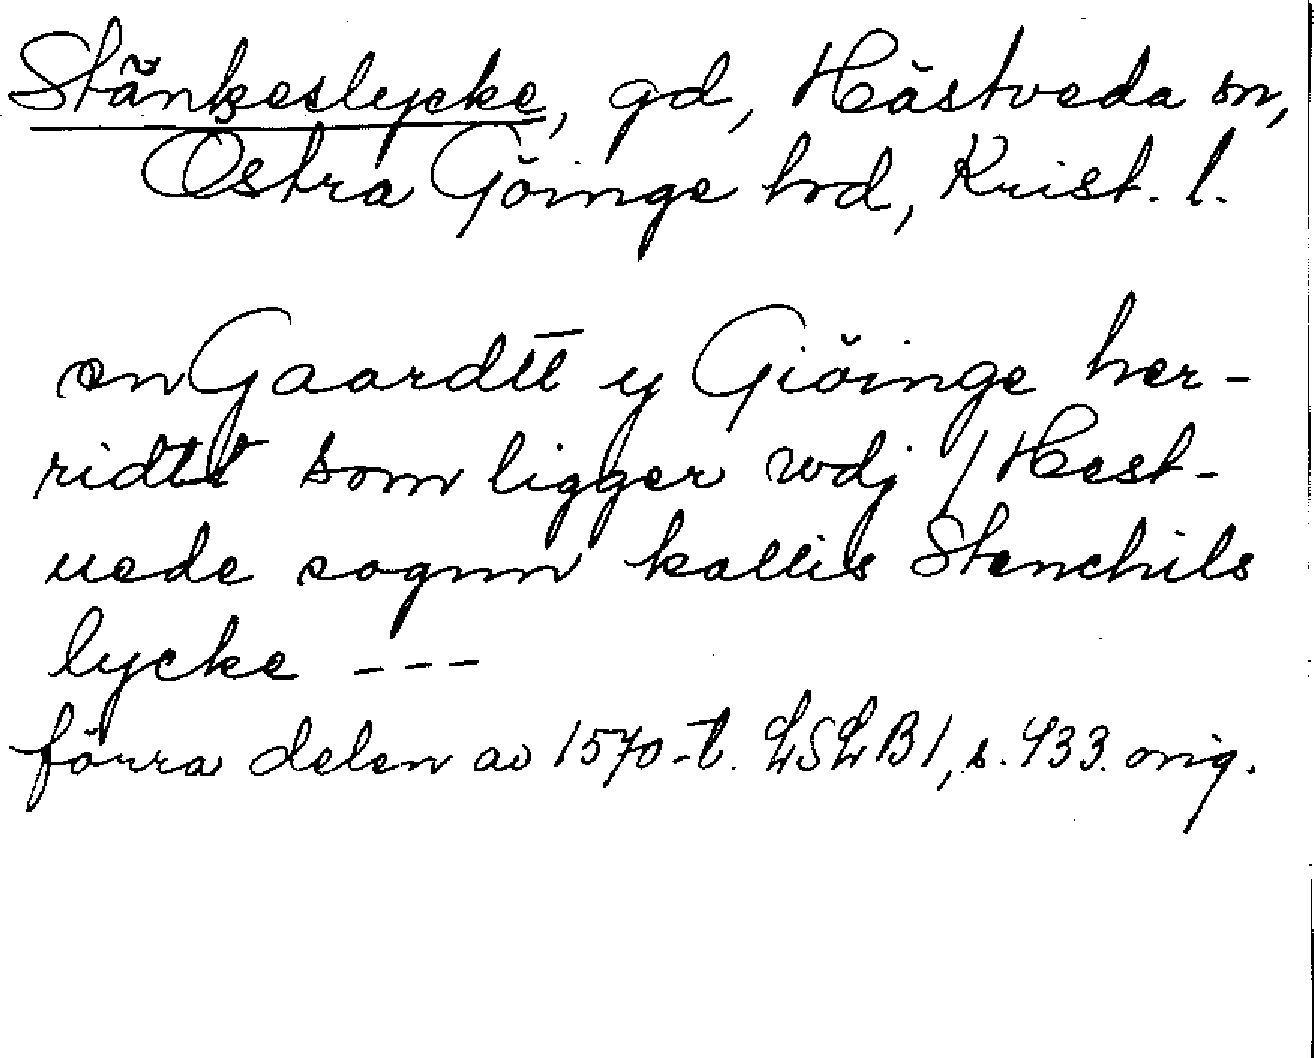 Stänkeslycke, gd, Hästveda sn,
Östra Göinge hrd, Krist. l.
en Gaardtt y Giöinge her-
ridtt som ligger wdj / Hest-
uede sognn kallis Stenchils
lycke ---
förra delen av 1570-t. LSLB1, s. 433. orig.